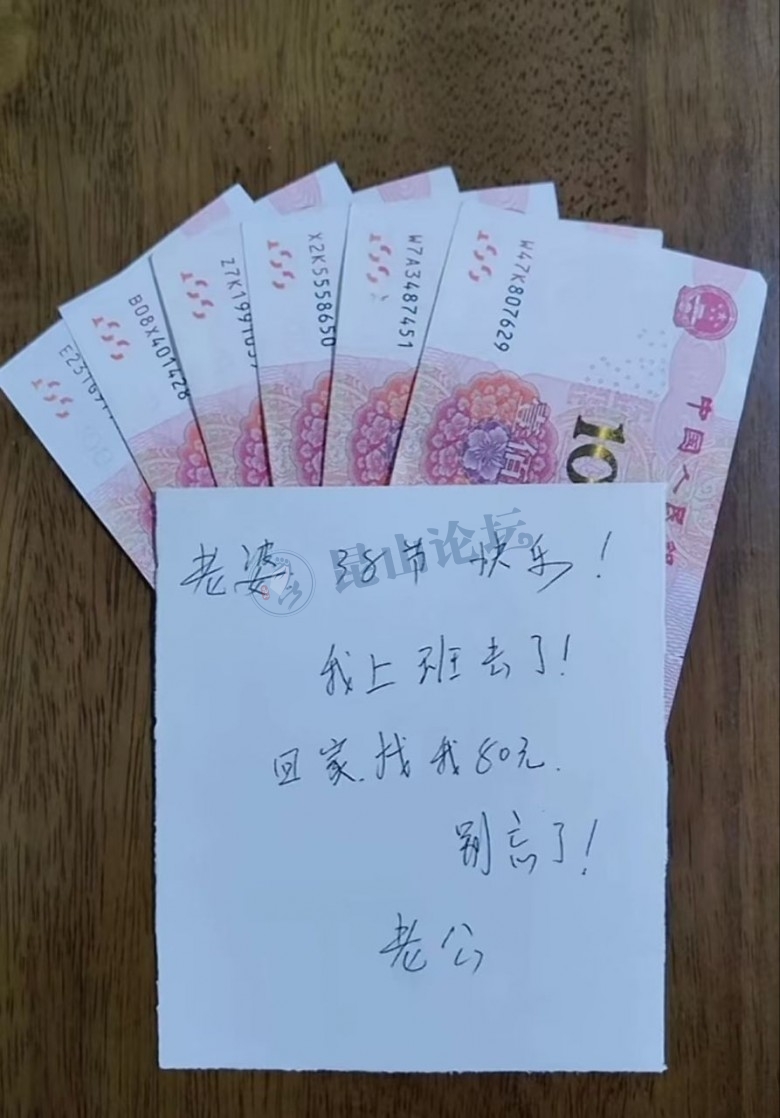 W47K807629
W7A3487451
X2K5558650
B08X401428
壹佰
10
中国人民
昆山论坛
老婆 38节快乐！
我上班去了！
回家.找我80元.
别忘了！
老公